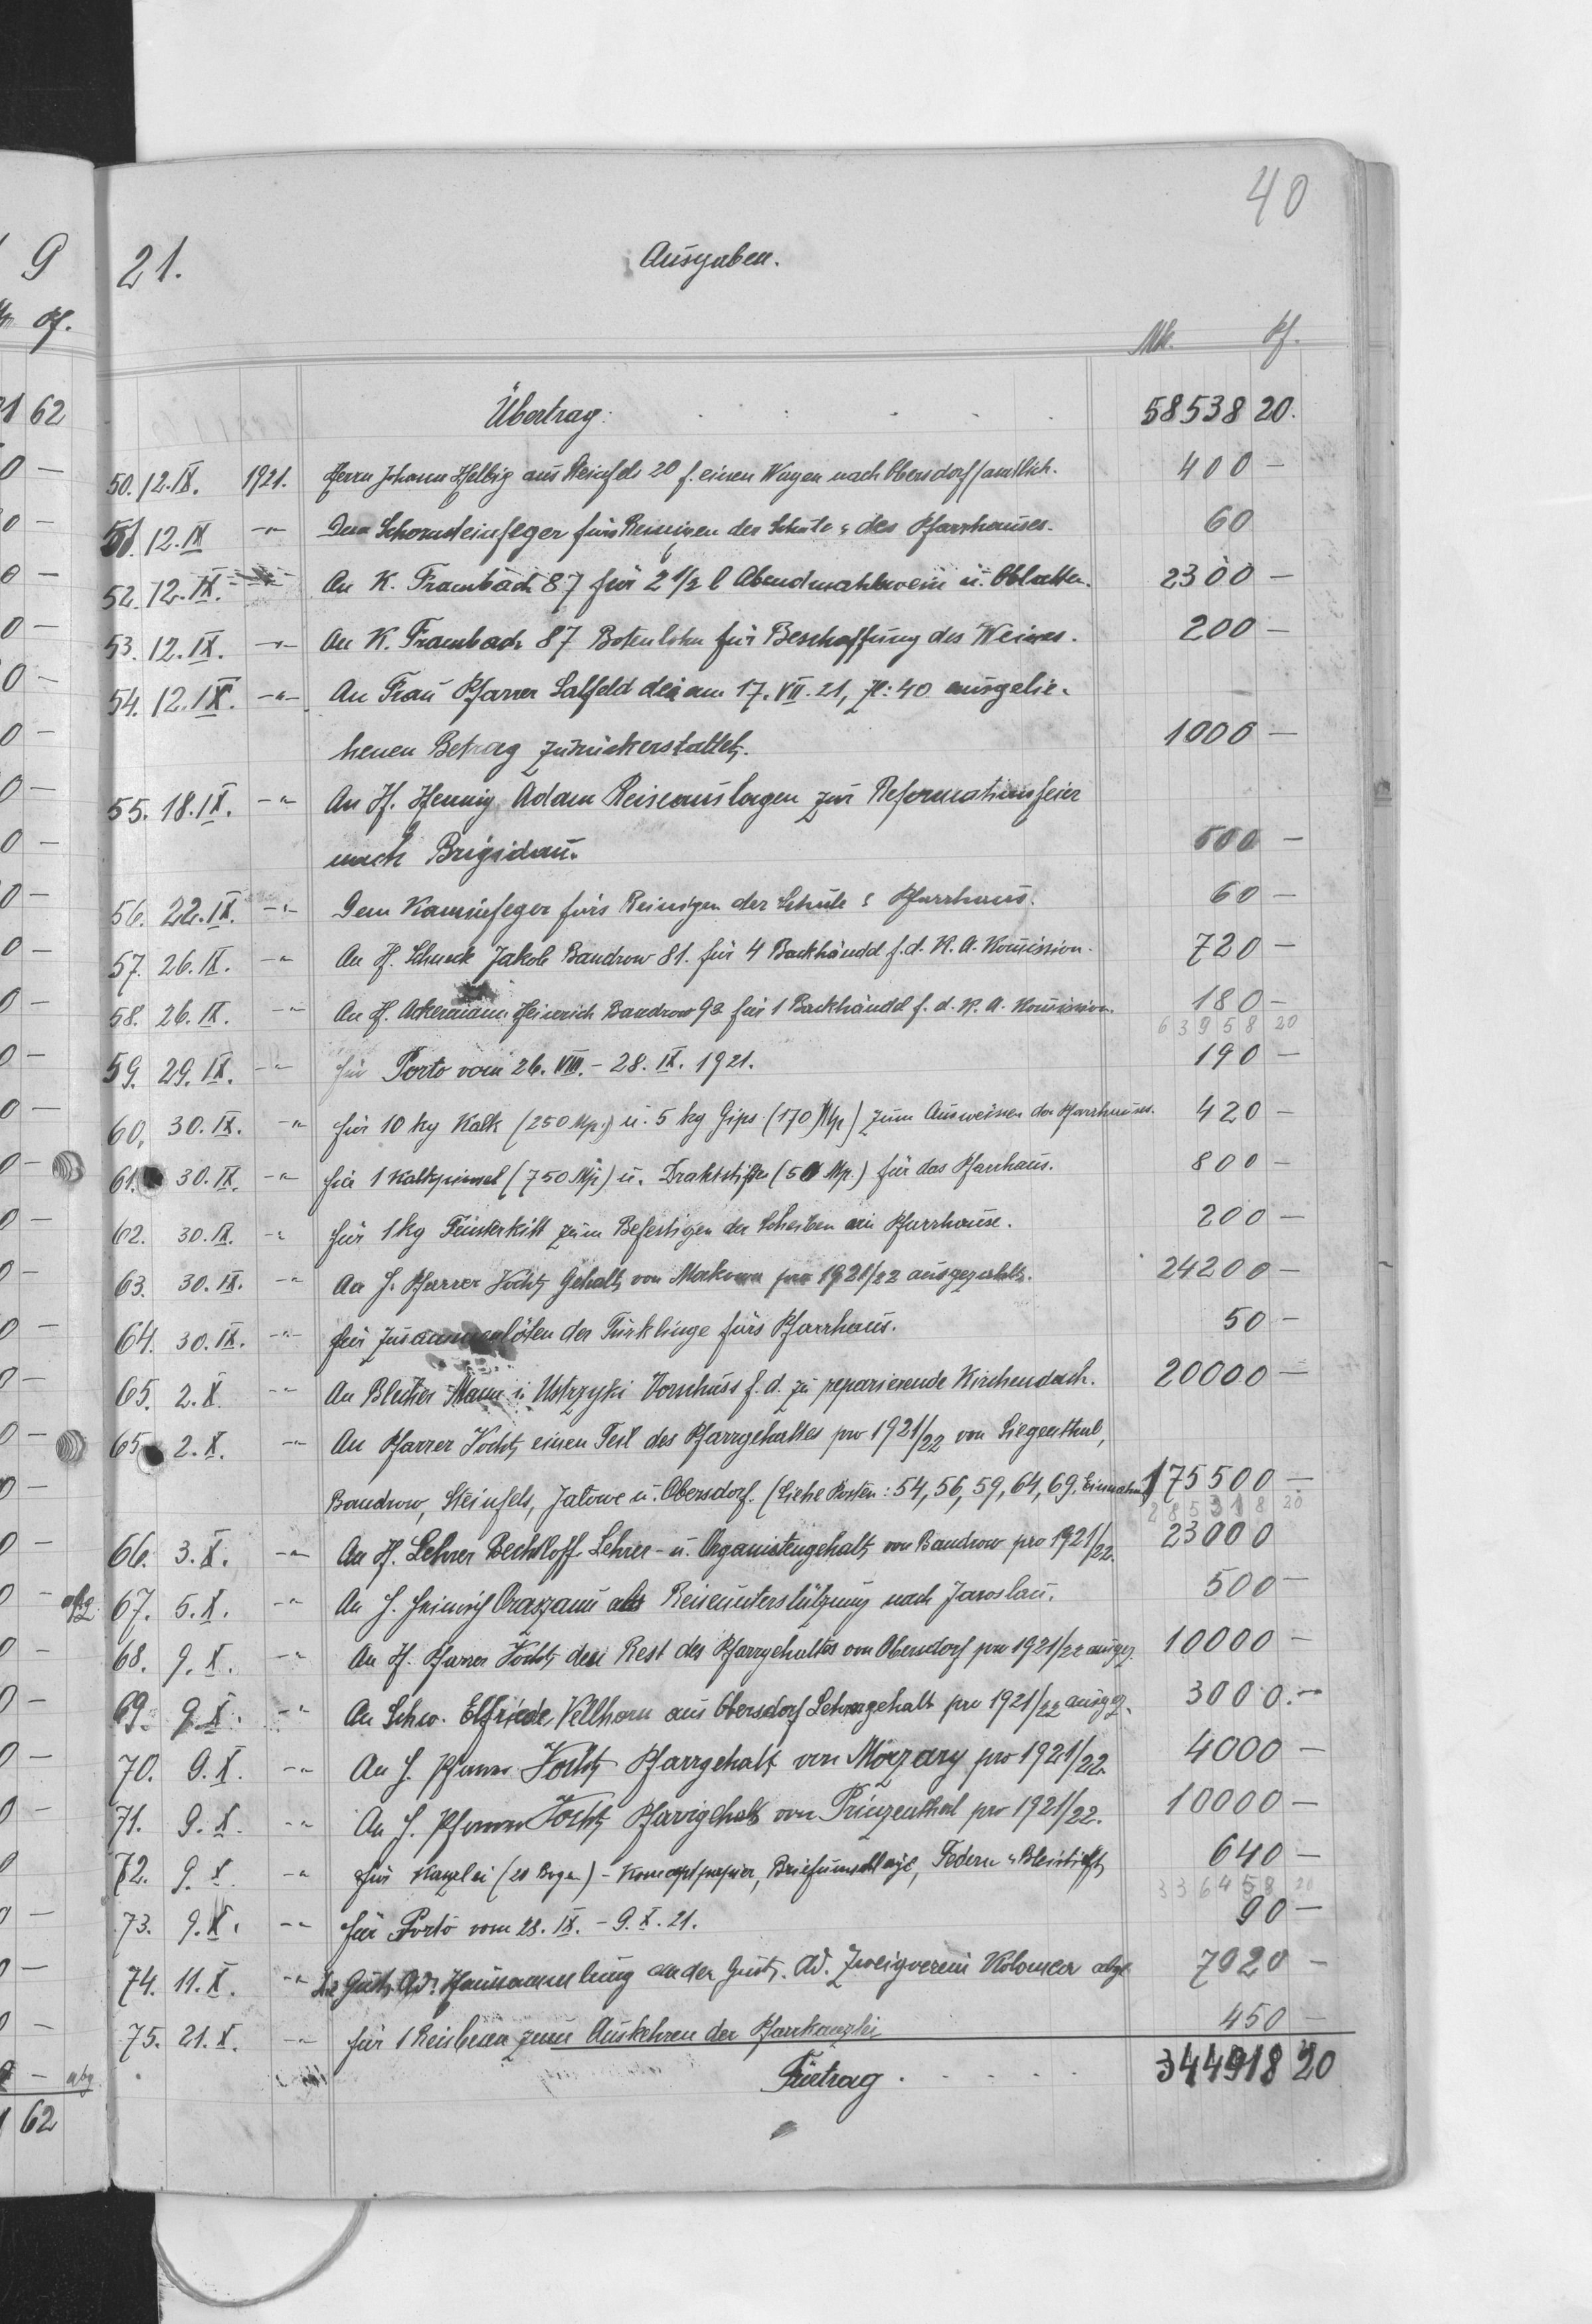 40
9
21.
Ausgaben.
Pf.
Mk. Pf.
62 Übertrag: 58538 20.
50. 12. IX. 1921. Herrn Johann Helbig aus Steinfels 20 f. einen Wagen nach Obersdorf/amtlich. 400 —
51. 12. IX -"- Dem Schornsteinfeger fürs Reinigen der Schule & des Pfarrhauses. 60
52. 12. IX. -"- An K. Frambach 87 für 2 1/2 l Abendmahlwein u. Oblatten. 2300 —
53. 12. IX. -"- An K. Frambach 87 Botenlohn für Beschaffung des Weines. 200 —
54. 12. IX. -"- An Frau Pfarrer Salfeld den am 17. VII. 21, : 40 ausgelie-
henen Betrag zurückerstattet. 1000 —
55. 18. IX. -"- An H. Hennig Adam Reiseauslagen zur Reformationsfeier
nach Brigidau. 600 —
56. 22. IX. -"- Dem Kaminfeger fürs Reinigen der Schule & Pfarrhaus. 60 —
57. 26. IX. -"- An H. Schneck Jakob Bandrow 81. für 4 Backhändl f. d. K. A. Komission. 720 —
58. 26. IX. -"- An H. Ackermann Heinrich Bandrow 93 für 1 Backhändl f. d. K. A. Komission. 180 —
63958 20
59. 29. IX. -"- für Porto vom 26. VIII. - 28. IX. 1921. 190 —
60. 30. IX. -"- für 10 kg Kalk (250 Mp.) u. 5 kg Gips (170 Mp) zum Ausweissen des Pfarrhauses. 420 —
61. 30. IX. -"- für 1 Kalkpinsel (750 Mp) u. Drahtstifte (50 Mp.) für das Pfarrhaus. 800 —
62. 30. IX. -"- für 1 kg Fensterkitt zum Befestigen der Scheiben am Pfarrhause. 200 —
63. 30. IX. -"- An H. Pfarrer Vocht Gehalt von Makowa pro 1921/22 ausgezahlt. 24200 —
64. 30. IX. -"- für Zusammenlöten der Türklinge fürs Pfarrhaus. 50 —
65. 2. X. -"- An Blecher Mann in Ustrzyki Vorschuss f. d. zu reparierende Kirchendach. 20000 —
65 2. X. -"- An Pfarrer Vocht einen Teil des Pfarrgehaltes pro 1921/22 von Siegenthal,
Bandrow, Steinfels, Jalowe u. Obersdorf. (Siehe Posten: 54, 56, 59, 64, 69. Einnahm 175500 —
285318 20
66. 3. X. -"- An H. Lehrer Bechtloff Lehrer- u. Organistengehalt von Bandrow pro 1921/22. 23000
67. 5. X. -"- An H. Heinrich als Reiseunterstützung nach Jaroslau. 500 —
68. 9. X. -"- An H. Pfarrer Vocht den Rest des Pfarrgehaltes von Obersdorf pro 1921/22 ausgez. 10000 —
69. 9. X. -"- An Schw. Elfriede Vellhorn aus Obersdorf Lehrergehalt pro 1921/22 ausgez. 3000. —
70. 9. X. -"- An H. Pfarrer Vocht Pfarrgehalt von Moczary pro 1921/22. 4000 —
71. 9. X. -"- An H. Pfarrer Vocht Pfarrgehalt von Prinzenthal pro 1921/22. 10000 —
72. 9. X. -"- für Kanzlei (20 Bogen) - Konceptpapier, Briefumschläge, Federn & Bleistift 640 —
336458 20
73. 9. X. -"- für Porto vom 28. IX. - 9. X. 21. 90 —
74. 11. X. -"- Die Gust. Ad. Haussammlung an der Gust. Ad. Zweigverein Kolomea abge 7920 —
75. 21. X. -"- für 1 Reisbesen zum Auskehren der Pfarrkanzlei 450 —
abg.
Fürtrag 344918 20
62